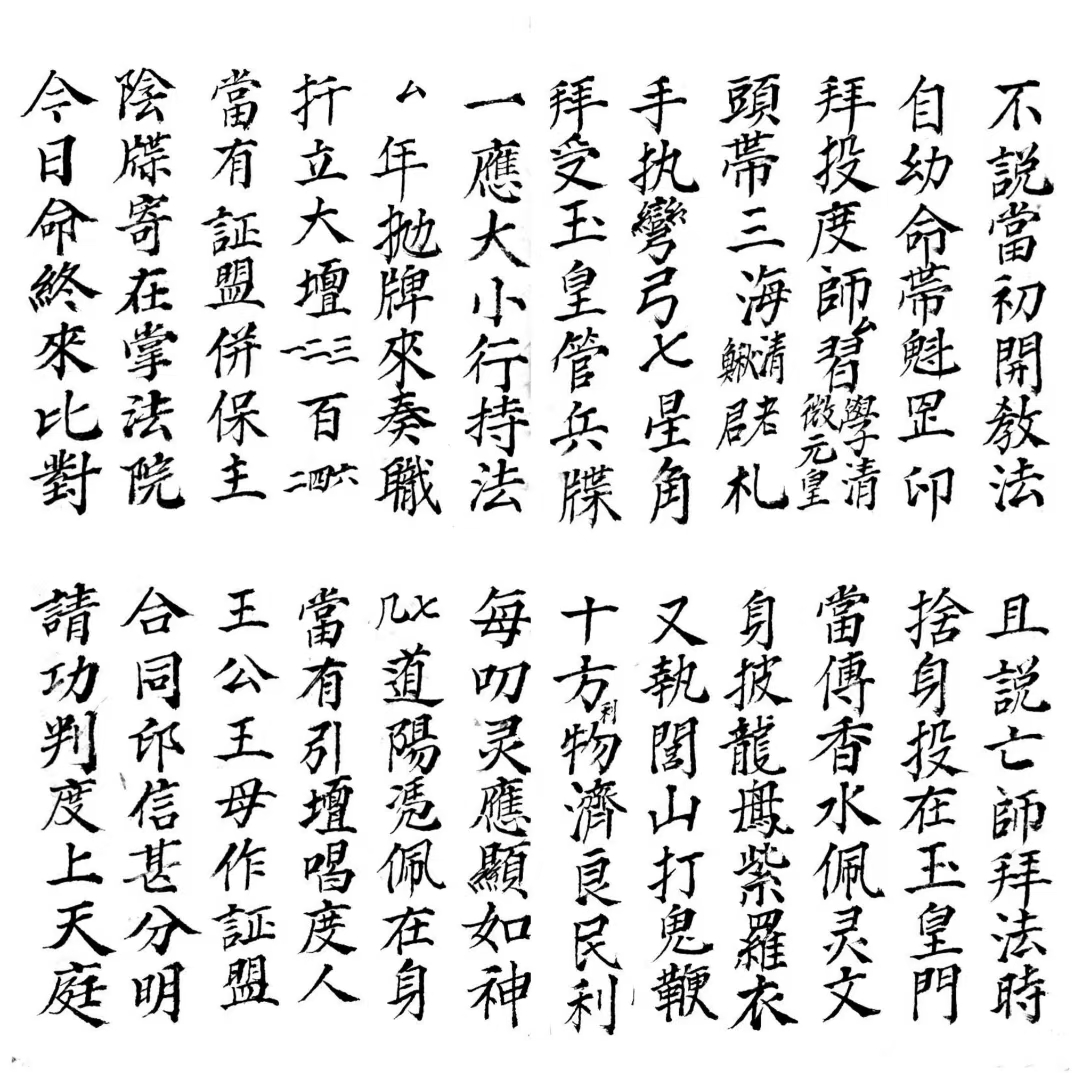 不説當初開敎法
且説亡師拜法時
自幼命帶魁罡印
捨身投在玉皇門
拜投度師厶習學清微元皇
當傳香水佩灵文
頭帶三海清鰍老君札
身披龍鳳紫羅衣
手执彎弓七星角
又執閭山打鬼鞭
拜受玉皇管兵牒
十方利物濟良民利
一應大小行持法
每叨灵應顯如神
厶年抛牌來奏職
七几道陽凴佩在身
扦立大壇三二一百六四二
當有引壇唱度人
當有証盟併保主
王公王母作証盟
陰牒寄在掌法院
合同印信甚分明
今日命終來比對
請功判度上天庭